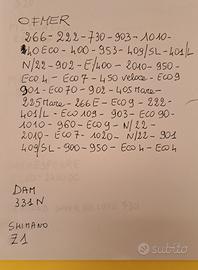 OFMER
266 - 222 - 730 - 903 - 1010 -
40 ECO - 400 - 953 - 409/SL - 401/L
N/22 - 902 - E/400 - 2010 - 950 -
ECO 4 - ECO 7 - 450 VELOCE - ECO 9
901 - ECO 70 - 902 - 405 MARE -
225 MARE - 266 E - ECO 9 - 222 -
401/L - ECO 109 - 903 - ECO 90 -
1010 - 960 - ECO 9 - N/22 -
2010 - ECO 7 - 1020 - N/22 - 901
409/SL - 900 - 950 - ECO 4 - ECO 4
DAM
331 N
SHIMANO
Z1
subito